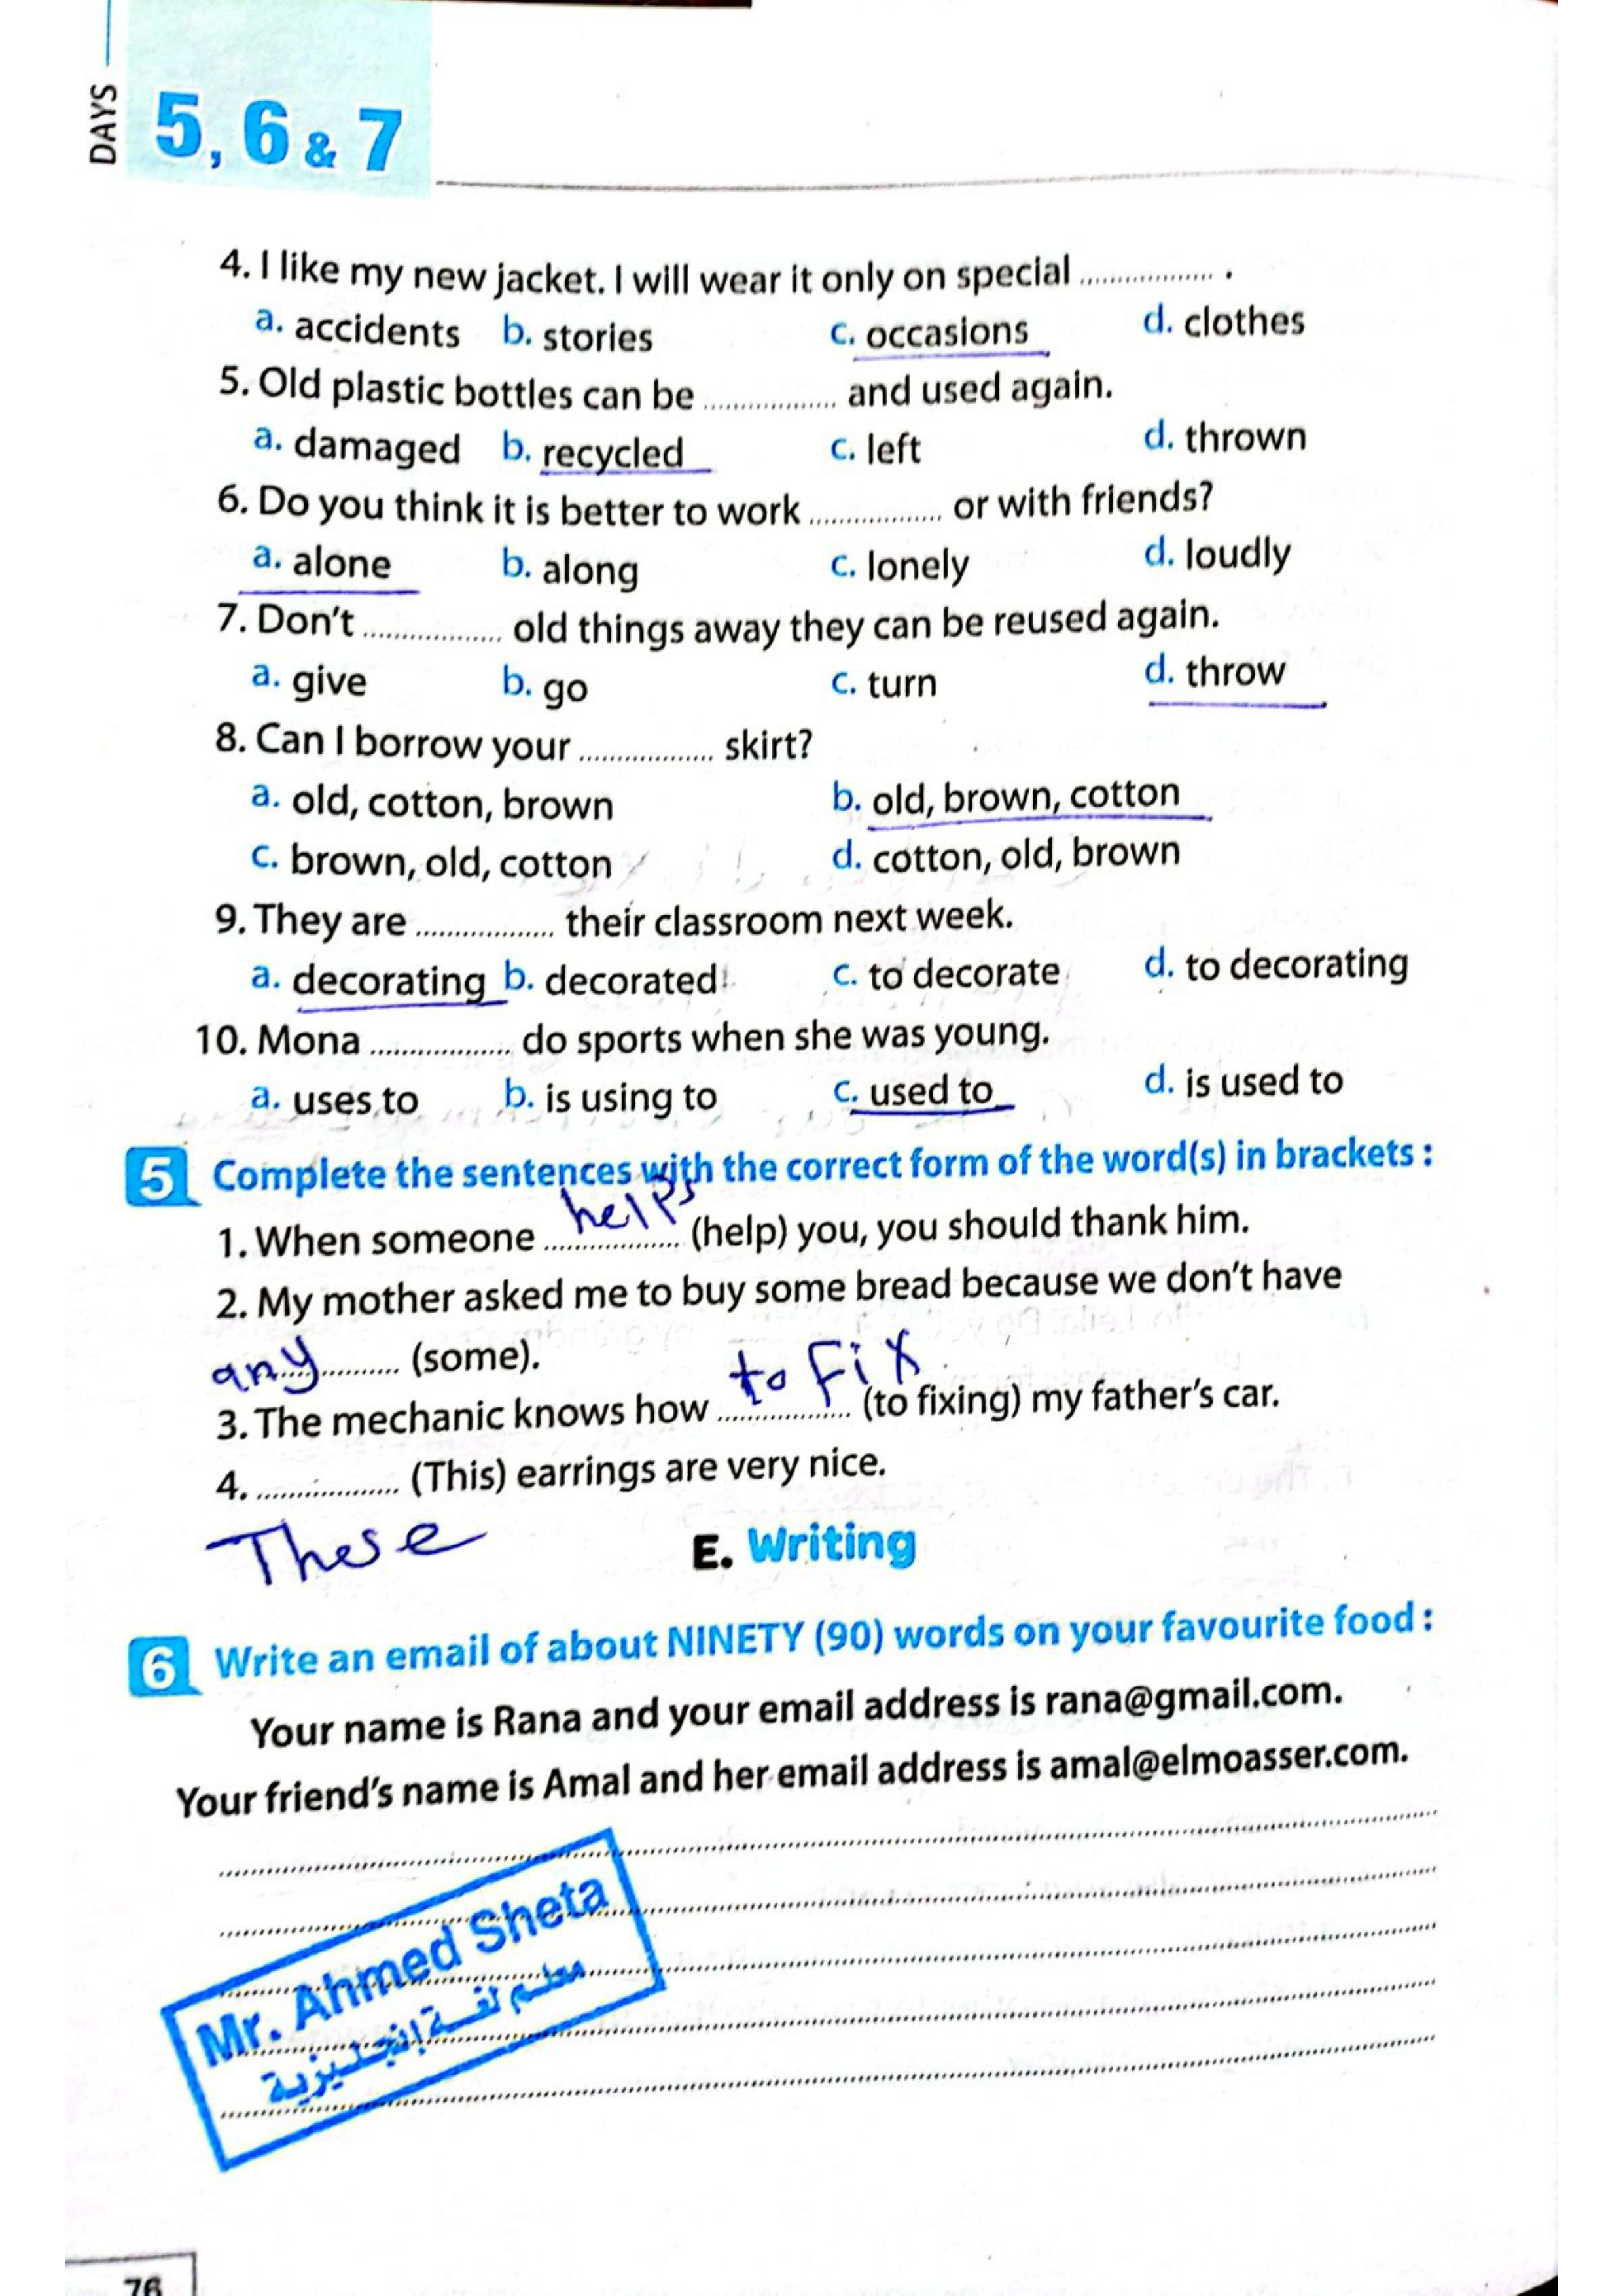 DAYS
5, 6 & 7
4. I like my new jacket. I will wear it only on special .................. .
a. accidents b. stories c. occasions d. clothes
5. Old plastic bottles can be .................. and used again.
a. damaged b. recycled c. left d. thrown
6. Do you think it is better to work .................. or with friends?
a. alone b. along c. lonely d. loudly
7. Don't .................. old things away they can be reused again.
a. give b. go c. turn d. throw
8. Can I borrow your .................. skirt?
a. old, cotton, brown b. old, brown, cotton
c. brown, old, cotton d. cotton, old, brown
9. They are .................. their classroom next week.
a. decorating b. decorated c. to decorate d. to decorating
10. Mona .................. do sports when she was young.
a. uses to b. is using to c. used to d. is used to
5 Complete the sentences with the correct form of the word(s) in brackets :
1. When someone helps (help) you, you should thank him.
2. My mother asked me to buy some bread because we don't have
any .......... (some).
3. The mechanic knows how to Fix (to fixing) my father's car.
4. .................. (This) earrings are very nice.
These
E. Writing
6 Write an email of about NINETY (90) words on your favourite food :
Your name is Rana and your email address is rana@gmail.com.
Your friend's name is Amal and her email address is amal@elmoasser.com.
Mr. Ahmed Sheta
معلم لغة إنجليزية
76